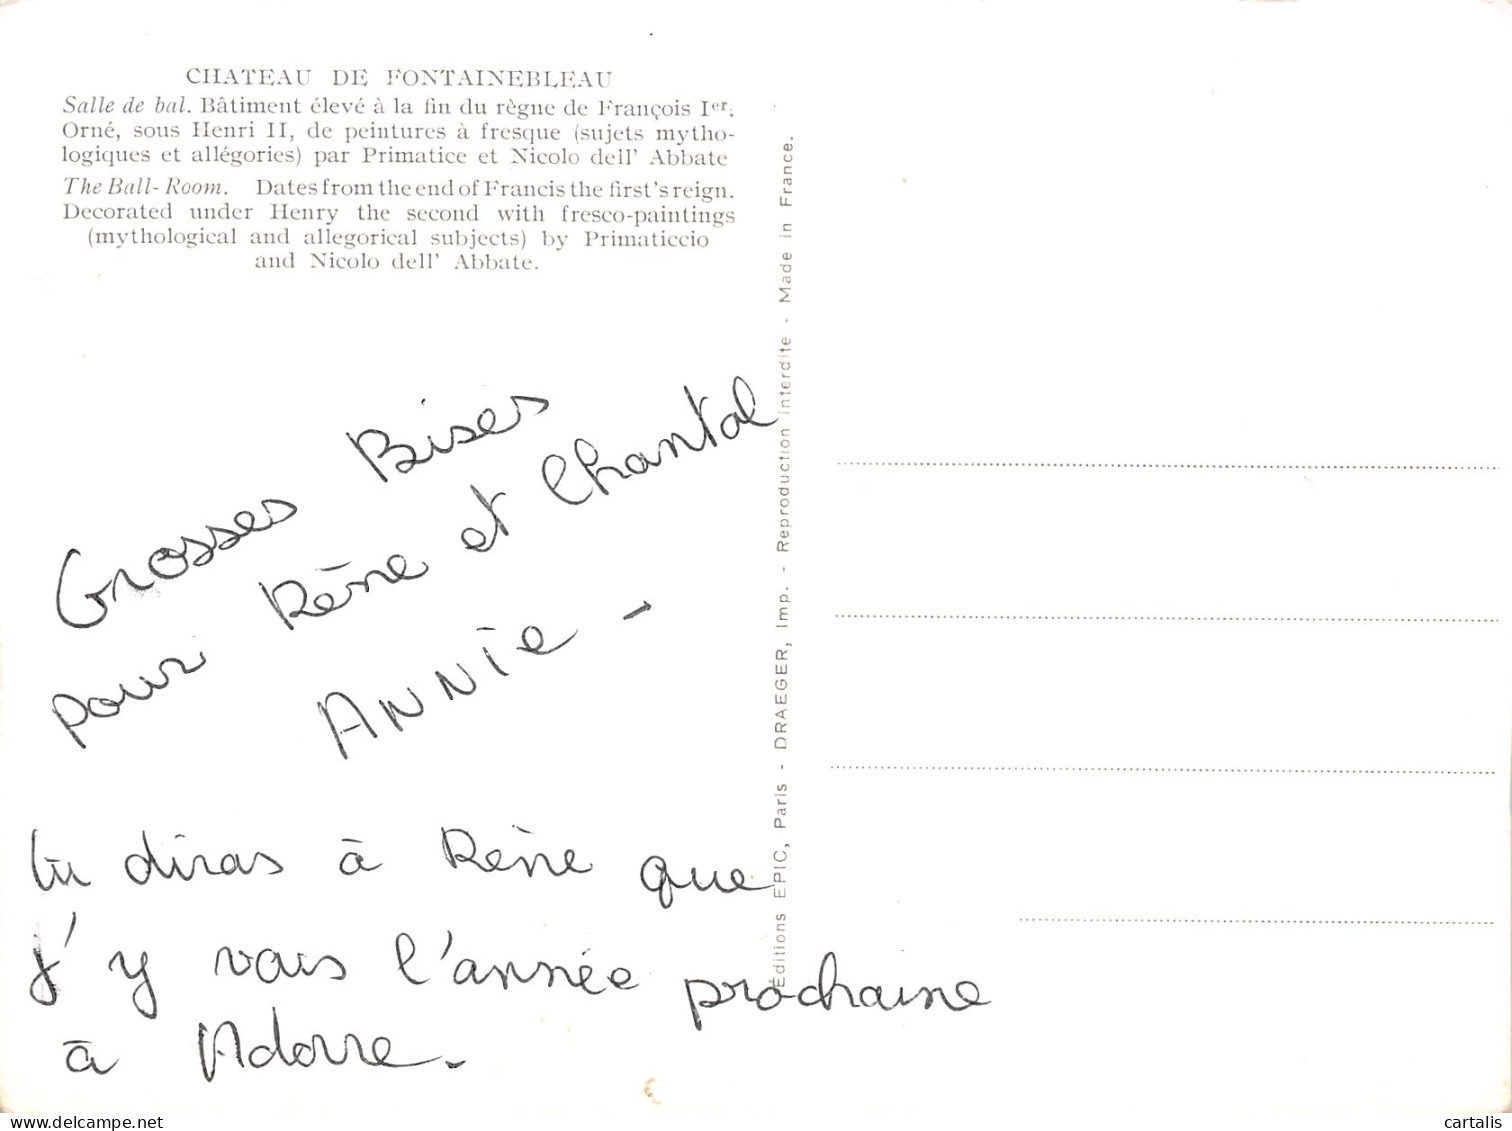 CHATEAU DE FONTAINEBLEAU
Salle de bal. Bâtiment élevé à la fin du règne de François Ier.
Orné, sous Henri II, de peintures à fresque (sujets mytho-
logiques et allégories) par Primatice et Nicolo dell' Abbate
The Ball-Room. Dates from the end of Francis the first's reign.
Decorated under Henry the second with fresco-paintings
(mythological and allegorical subjects) by Primaticcio
and Nicolo dell' Abbate.
Grosses Bises
pour Réne et Chantal
ANNie -
tu diras à Réne que
j'y vais l'année prochaine
à Adorre.
Éditions EPIC, Paris - DRAEGER, Imp. - Reproduction interdite - Made in France.
delcampe.net
cartalis